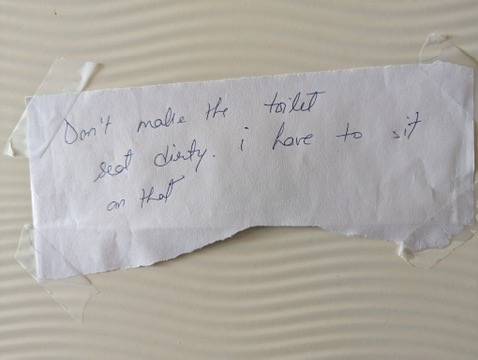 Don't make the toilet
seat dirty. i have to sit
on that